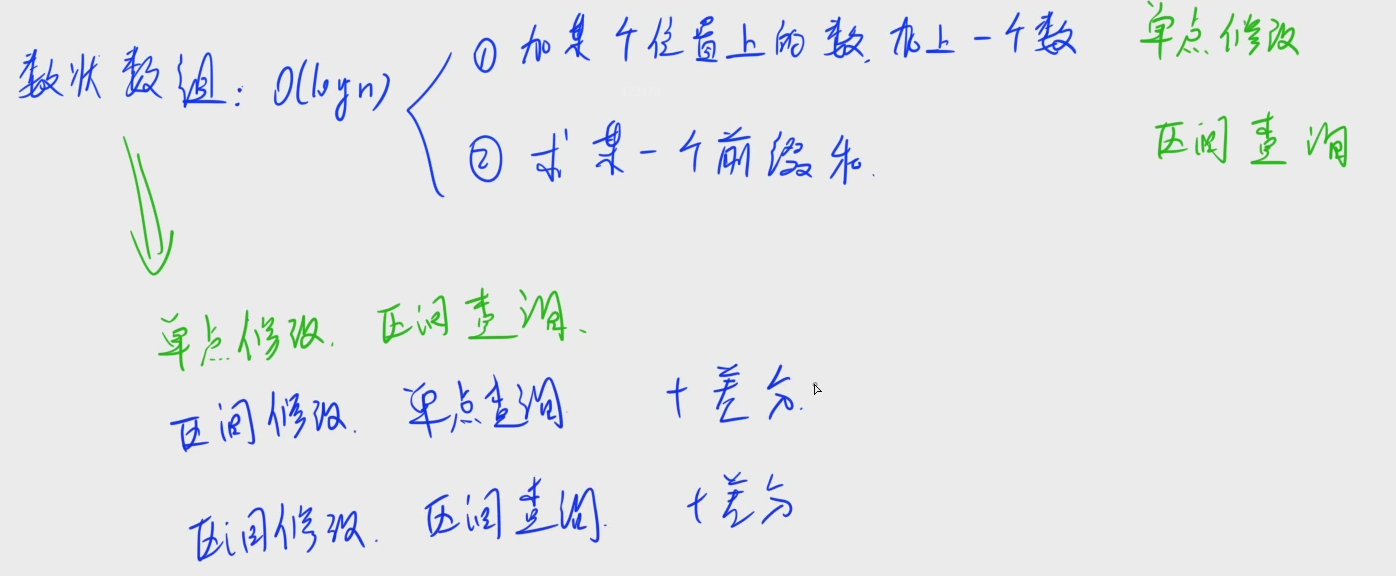 数状数组: O(logn)
① 加某个位置上的数, 加上一个数 单点修改
② 求某一个前缀和. 区间查询
单点修改. 区间查询、
区间修改. 单点查询 + 差分.
区间修改. 区间查询. + 差分